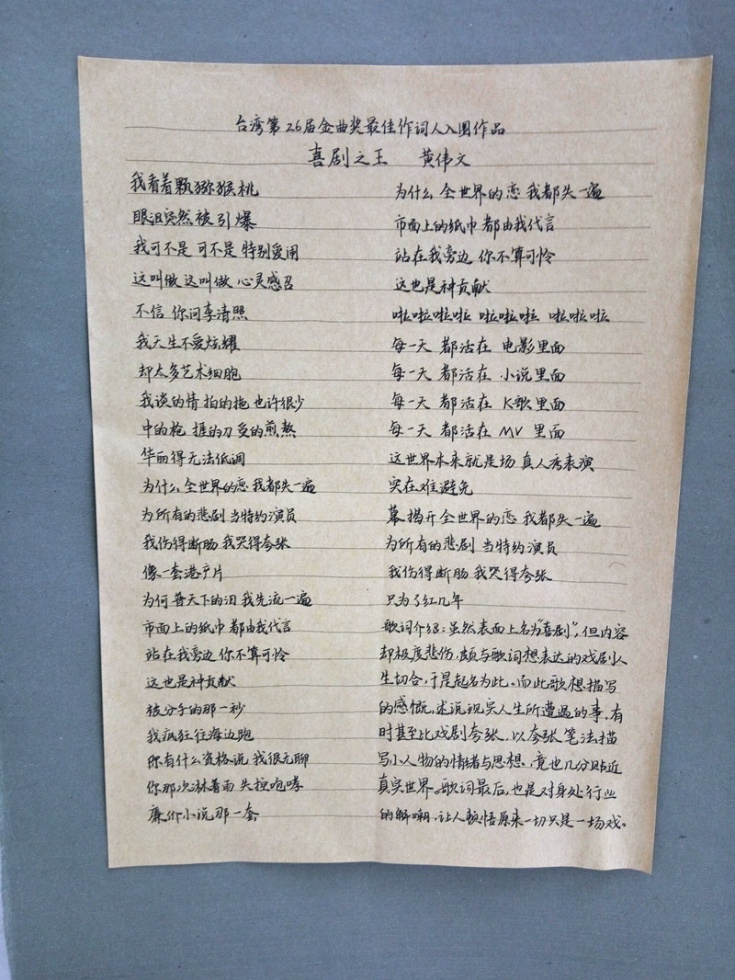 台湾第26届金曲奖最佳作词人入围作品
喜剧之王 黄伟文
我看着颗猕猴桃
眼泪突然被引爆
我可不是 可不是 特别爱闹
这叫做 这叫做 心灵感召
不信 你问李清照
我天生不爱炫耀
却太多艺术细胞
我谈的情 拍的拖 也许很少
中的枪 捱的刀 受的煎熬
华丽得无法低调
为什么 全世界的恋 我都失一遍
为所有的悲剧 当特约演员
我伤得断肠 我哭得夸张
像一套港产片
为何 普天下的泪 我先流一遍
市面上的纸巾 都由我代言
站在我旁边 你不算可怜
这也是种贡献
被分手的那一秒
我疯狂往海边跑
你有什么资格说 我很无聊
你那次淋着雨 失控咆哮
廉价小说那一套
为什么 全世界的恋 我都失一遍
市面上的纸巾 都由我代言
站在我旁边 你不算可怜
这也是种贡献
啦啦啦啦 啦啦啦啦 啦啦啦
每一天 都活在 电影里面
每一天 都活在 小说里面
每一天 都活在 K歌里面
每一天 都活在 MV 里面
这世界本来就是场 真人秀表演
实在难避免
幕揭开全世界的恋 我都失一遍
为所有的悲剧 当特约演员
我伤得断肠 我哭得夸张
只为了红几年
歌词介绍：虽然表面上名为“喜剧”，但内容
却极度悲伤，颇与歌词想表达的戏剧人
生切合，于是起名为此。而此歌想描写
的感慨，述说现实人生所遭遇的事，有
时甚至比戏剧夸张，以夸张笔法描
写小人物的情绪与思想，竟也几分贴近
真实世界。歌词最后，也是对身处行业
的解嘲，让人顿悟原来一切只是一场戏。